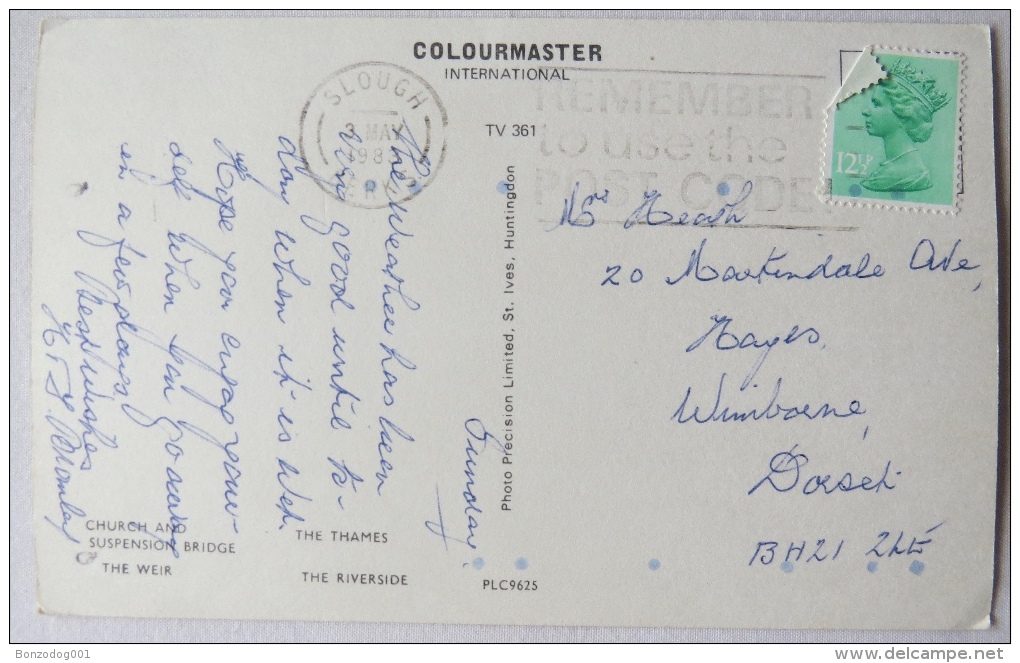 COLOURMASTER
INTERNATIONAL
SLOUGH
3 MAY
1983
BERKS
REMEMBER
to use the
POST CODE
12½P
TV 361
Sunday.
The Weather has been
very good until to-
day when it is Wet.
Hope you enjoy your-
self when you go away
in a few days
Best Wishes
Photo Precision Limited, St. Ives, Huntingdon
Mrs Heath
20 Martindale Ave,
Hayes,
Wimborne,
Dorset
BH21
CHURCH AND
SUSPENSION BRIDGE
THE WEIR
THE THAMES
THE RIVERSIDE
PLC9625
Bonzodog001
www.delcampe.net